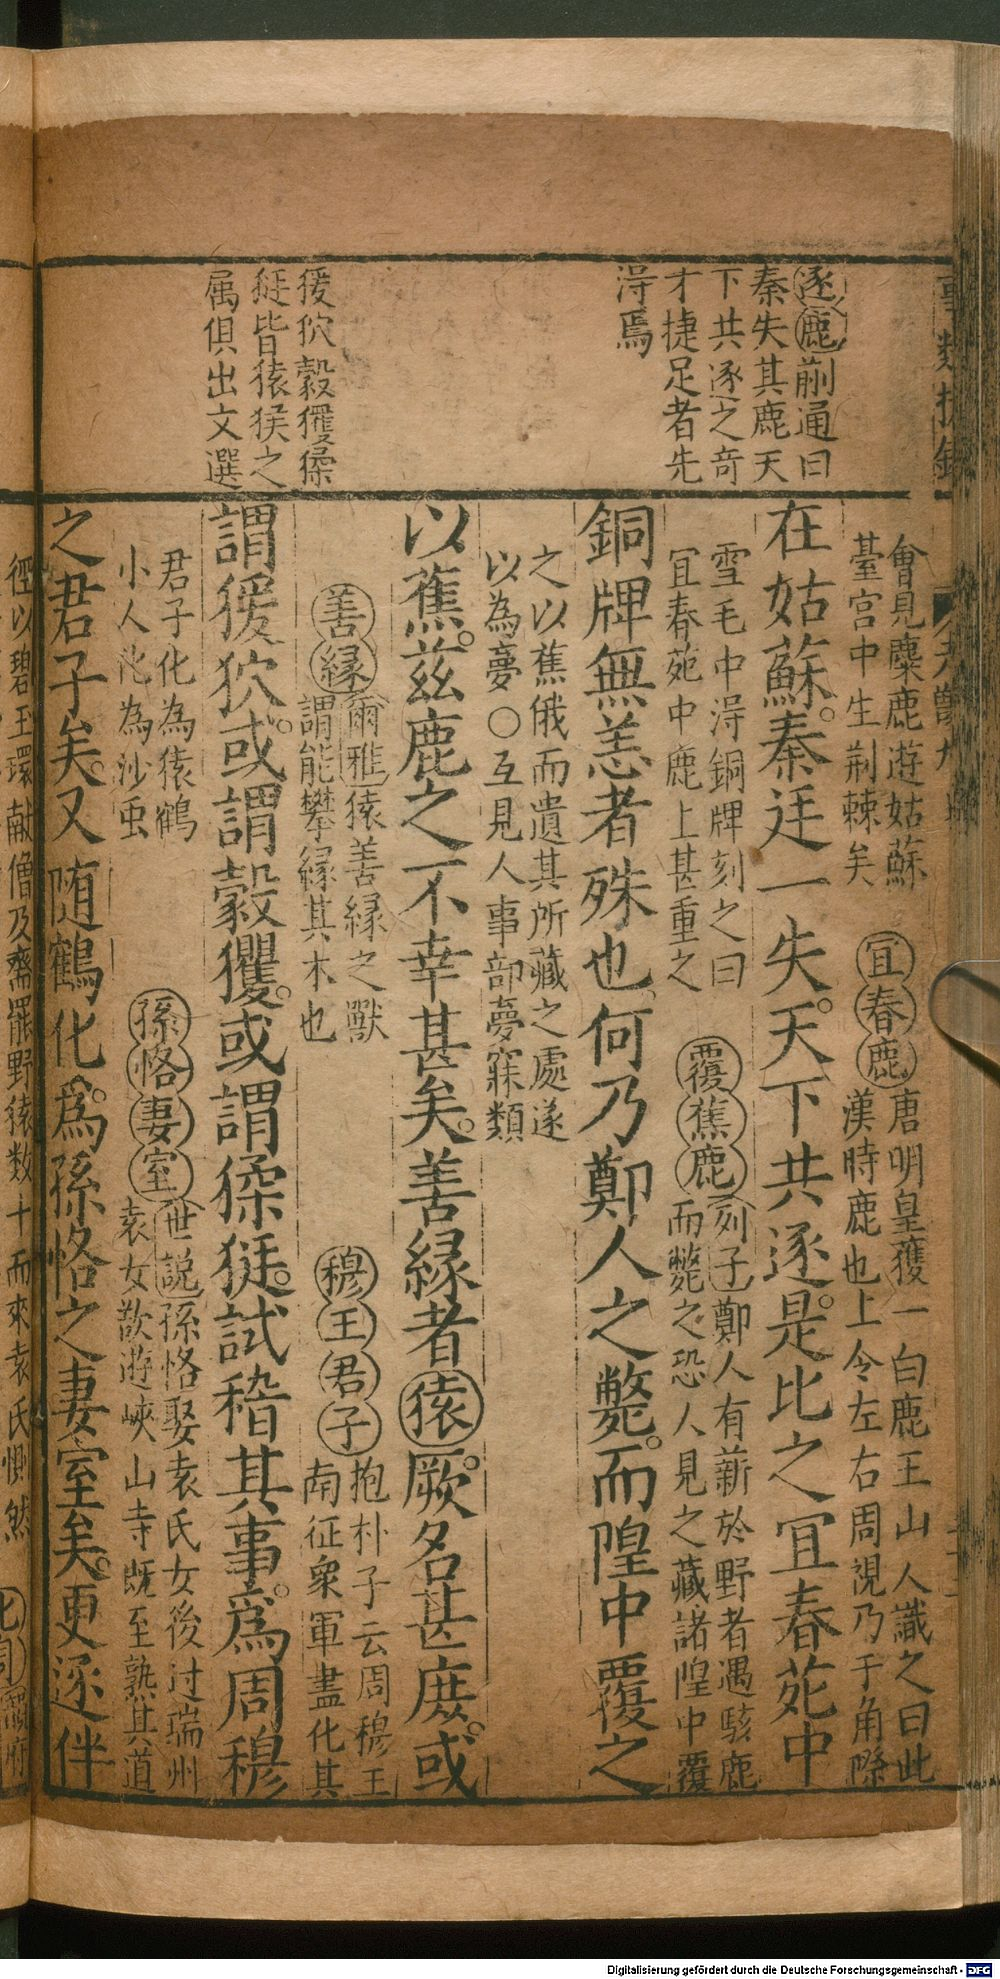 逐鹿蒯通曰
秦失其鹿天
下共逐之奇
才捷足者先
得焉
猨狖豰玃猱
狿皆猿猴之
属俱出文選
曾見麋鹿遊姑蘇
臺宫中生荆棘矣
宜春鹿
唐明皇獲一白鹿王山人識之曰此
漢時鹿也上令左右周視乃于角際
在姑蘇。秦廷一失。天下共逐。是比之宜春苑中
雪毛中淂銅牌刻之曰
宜春苑中鹿上甚重之
覆蕉鹿
列子鄭人有薪於野者遇駭鹿
而斃之恐人見之藏諸隍中覆
銅牌無恙者殊也。何乃鄭人之斃。而隍中覆之
之以蕉俄而遺其所藏之處遂
以為夢○互見人事部夢寐類
以蕉。兹鹿之不幸甚矣。善緣者猿。厥名甚庶。或
善緣
爾雅猿善緣之獸
謂能攀緣其木也
穆王君子
抱朴子云周穆王
南征衆軍盡化其
謂猨狖。或謂豰玃。或謂猱狿。試稽其事。為周穆
君子化為猿鶴
小人化為沙虫
孫恪妻室
世説孫恪娶袁氏女後过瑞州
袁女欲遊峽山寺既至熟其道
之君子矣。又随鶴化。為孫恪之妻室矣。更逐伴
徑以碧玉環献僧及齋罷野猿数十而來袁氏惻然
Digitalisierung gefördert durch die Deutsche Forschungsgemeinschaft - DFG